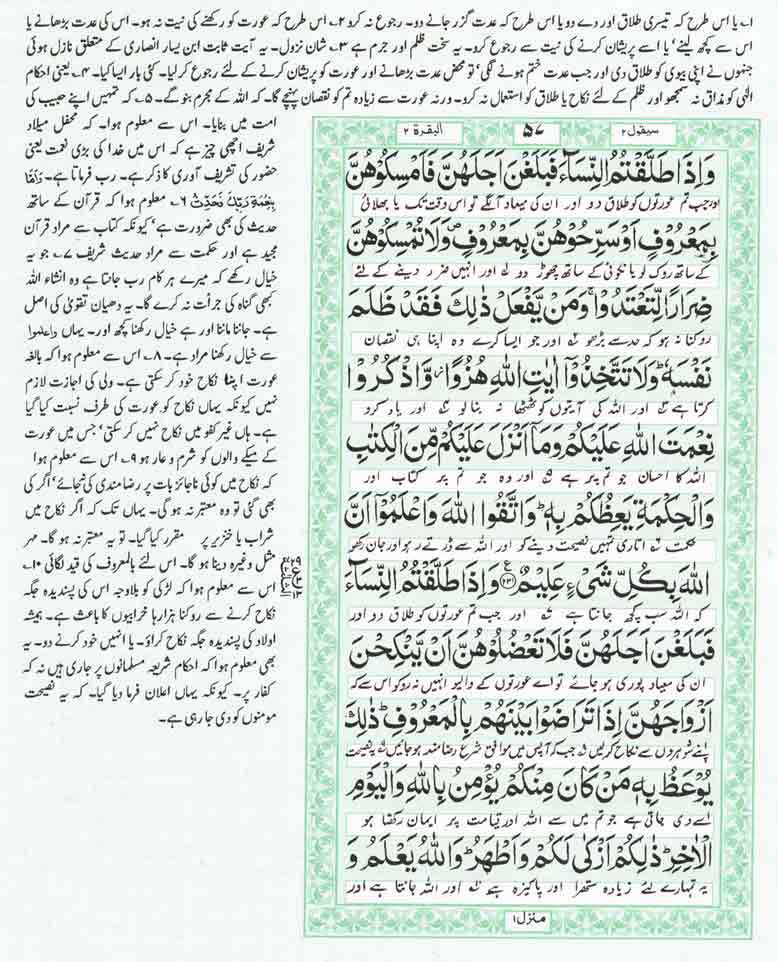 ا۔ یا اس طرح کہ تیسری طلاق اور دے دو یا اس طرح کہ عدت گزر جانے دو۔ رجوع نہ کرو ۲۔ اس طرح کہ عورت کو رکھنے کی نیت نہ ہو۔ اس کی عدت بڑھانے یا
اس سے کچھ لینے' یا اسے پریشان کرنے کی نیت سے رجوع کرو۔ یہ سخت ظلم اور جرم ہے ۳۔ شان نزول۔ یہ آیت ثابت ابن یسار انصاری کے متعلق نازل ہوئی
جنہوں نے اپنی بیوی کو طلاق دی اور جب عدت ختم ہونے لگی' تو محض عدت بڑھانے اور عورت کو پریشان کرنے کے لئے رجوع کر لیا۔ کئی بار ایسا کیا۔ ۴۔ یعنی احکام
الٰہی کو مذاق نہ سمجھو اور ظلم کے لئے نکاح یا طلاق کو استعمال نہ کرو۔ ورنہ عورت سے زیادہ تم کو نقصان پہنچے گا۔ کہ اللہ کے مجرم بنو گے۔ ۵۔ کہ تمہیں اپنے حبیب کی
امت میں بنایا۔ اس سے معلوم ہوا۔ کہ محفل میلاد
شریف اچھی چیز ہے کہ اس میں خدا کی بڑی نعمت یعنی
حضور کی تشریف آوری کا ذکر ہے۔ رب فرماتا ہے۔ وَاَمَّا
بِنِعْمَةِ رَبِّكَ فَحَدِّثْ ۶۔ معلوم ہوا کہ قرآن کے ساتھ
حدیث کی بھی ضرورت ہے' کیونکہ کتاب سے مراد قرآن
مجید ہے اور حکمت سے مراد حدیث شریف ۷۔ جو یہ
خیال رکھے کہ میرے ہر کام رب جانتا ہے وہ انشاء اللہ
کبھی گناہ کی جرأت نہ کرے گا۔ یہ دھیان تقویٰ کی اصل
ہے۔ جاننا ماننا اور ہے خیال رکھنا کچھ اور۔ یہاں واعلموا
سے خیال رکھنا مراد ہے۔ ۸۔ اس سے معلوم ہوا کہ بالغہ
عورت اپنا نکاح خود کر سکتی ہے۔ ولی کی اجازت لازم
نہیں کیونکہ یہاں نکاح کو عورت کی طرف نسبت کیا گیا
ہے۔ ہاں غیر کفو میں نکاح نہیں کر سکتی' جس میں عورت
کے میکے والوں کو شرم و عار ہو ۹۔ اس سے معلوم ہوا
کہ نکاح میں کوئی ناجائز بات پر رضامندی کی جائے' اگر کی
بھی گئی تو وہ معتبر نہ ہو گی۔ یہاں تک کہ اگر نکاح میں
شراب یا خنزیر پر مقرر کیا گیا۔ تو یہ معتبر نہ ہو گا۔ مہر
مثل وغیرہ دینا ہو گا۔ اس لئے بالمعروف کی قید لگائی ۱۰۔
اس سے معلوم ہوا کہ لڑکی کو بلاوجہ اس کی پسندیدہ جگہ
نکاح کرنے سے روکنا ہزارہا خرابیوں کا باعث ہے۔ ہمیشہ
اولاد کی پسندیدہ جگہ نکاح کراؤ۔ یا انہیں خود کرنے دو۔ یہ
بھی معلوم ہوا کہ احکام شریعہ مسلمانوں پر جاری ہیں نہ کہ
کفار پر۔ کیونکہ یہاں اعلان فرما دیا گیا۔ کہ یہ نصیحت
مومنوں کو دی جا رہی ہے۔
سیقول ۲ ۵۷ البقرة ۲
وَاِذَا طَلَّقْتُمُ النِّسَآءَ فَبَلَغْنَ اَجَلَهُنَّ فَاَمْسِكُوْهُنَّ
اور جب تم عورتوں کو طلاق دو اور ان کی میعاد آلگے تو اس وقت تک یا بھلائی
بِمَعْرُوْفٍ اَوْ سَرِّحُوْهُنَّ بِمَعْرُوْفٍ وَلَا تُمْسِكُوْهُنَّ
کے ساتھ روک لو یا نکوئی کے ساتھ چھوڑ دو اور انہیں ضرر دینے کے لئے
ضِرَارًا لِّتَعْتَدُوْا وَمَنْ يَّفْعَلْ ذٰلِكَ فَقَدْ ظَلَمَ
روکنا نہ ہو کہ حد سے بڑھو اور جو ایسا کرے وہ اپنا ہی نقصان
نَفْسَهٗ وَلَا تَتَّخِذُوْٓا اٰيٰتِ اللّٰهِ هُزُوًا وَّاذْكُرُوْا
کرتا ہے اور اللہ کی آیتوں کو ٹھٹھا نہ بنا لو اور یاد کرو
نِعْمَتَ اللّٰهِ عَلَيْكُمْ وَمَآ اَنْزَلَ عَلَيْكُمْ مِّنَ الْكِتٰبِ
اللہ کا احسان جو تم پر ہے اور وہ جو تم پر کتاب اور
وَالْحِكْمَةِ يَعِظُكُمْ بِهٖ وَاتَّقُوا اللّٰهَ وَاعْلَمُوْٓا اَنَّ
حکمت اتاری تمہیں نصیحت دینے کو اور اللہ سے ڈرتے رہو اور جان رکھو
اللّٰهَ بِكُلِّ شَيْءٍ عَلِيْمٌ ۲۳۱ وَاِذَا طَلَّقْتُمُ النِّسَآءَ
کہ اللہ سب کچھ جانتا ہے اور جب تم عورتوں کو طلاق دو اور
فَبَلَغْنَ اَجَلَهُنَّ فَلَا تَعْضُلُوْهُنَّ اَنْ يَّنْكِحْنَ
ان کی میعاد پوری ہو جائے تو اے عورتوں کے والیو انہیں نہ روکو اس سے کہ
اَزْوَاجَهُنَّ اِذَا تَرَاضَوْا بَيْنَهُمْ بِالْمَعْرُوْفِ ذٰلِكَ
اپنے شوہروں سے نکاح کر لیں جب کہ آپس میں موافق شرع رضامند ہو جائیں یہ نصیحت
يُوْعَظُ بِهٖ مَنْ كَانَ مِنْكُمْ يُؤْمِنُ بِاللّٰهِ وَالْيَوْمِ
اسے دی جاتی ہے جو تم میں سے اللہ اور قیامت پر ایمان رکھتا ہو
الْاٰخِرِ ذٰلِكُمْ اَزْكٰى لَكُمْ وَاَطْهَرُ وَاللّٰهُ يَعْلَمُ وَ
یہ تمہارے لئے زیادہ ستھرا اور پاکیزہ ہے اور اللہ جانتا ہے اور
منزل ۱